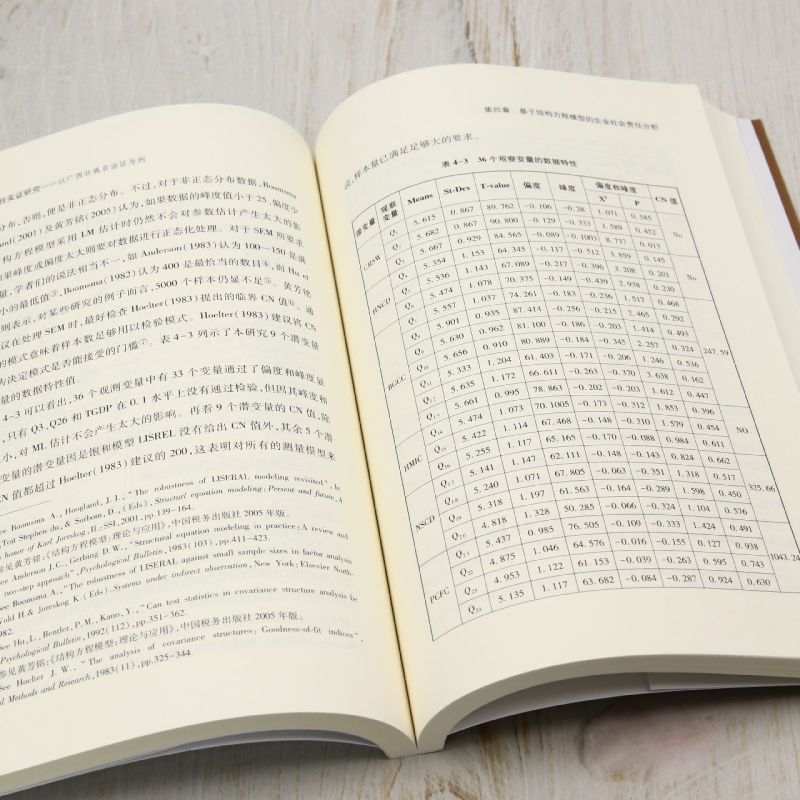 任实证研究——以广西壮族自治区为例
分布,否则,便是非正态分布。不过,对于非正态分布数据,Boomsma
and(2001)及黄芳铭(2005)认为,如果数据的峰度值小于25,偏度少
构方程模型采用LM估计时仍然不会对参数估计产生太大的影
如果峰度或偏度太大则要对数据进行正态化处理。对于SEM所要求
量,学者们的说法相当不一,如Anderson(1983)认为100—150是满
小的最低值③,Boomsma(1982)认为400是最恰当的数目④,而Hu et
则表示,对某些研究的例子而言,5000个样本仍显不足⑤。黄芳铭
议在处理SEM时,最好检查Hoelter(1983)提出的临界CN值⑥。通
的模式意味着样本数足够用以检验模式。Hoelter(1983)建议将CN
为决定模式是否能接受的门槛⑦。表4-3列示了本研究9个潜变量
量的数据特性值。
4-3可以看出,36个观测变量中有33个变量通过了偏度和峰度显
,只有Q3、Q26和TGDP在0.1水平上没有通过检验,但因其峰度和
小,对ML估计不会产生太大的影响。再看9个潜变量的CN值,除
变量的潜变量因是饱和模型LISREL没有给出CN值外,其余5个潜
CN值都超过Hoelter(1983)建议的200,这表明对所有的测量模型来
See Boomsma A., Hoogland, J. J., "The robustness of LISERAL modeling revisited", In.
(Toit Stephen du, & Sorbom, D., (Eds), Structral equation modeling: Persent and future, A
honor of Karl Joreskog, IL: SSI, 2001, pp. 139-164.
参见黄芳铭:《结构方程模型:理论与应用》,中国税务出版社2005年版。
See Anderson J. C., Gerbing D. W., "Structural equation modeling in practice: A review and
(two-step approach", Psychological Bulletin, 1983(103), pp. 411-423.
See Boomsma A., "The robustness of LISERAL against small sample sizes in factor analysis
Wold H. & Joreskog K. (Eds), Systems under indirect observation, New York: Elsevier North-
982.
See Hu, L., Bentler, P. M., Kano, Y., "Can test statistics in covariance structure analysis be
Psychological Bulletin, 1992(112), pp. 351-362.
参见黄芳铭:《结构方程模型:理论与应用》,中国税务出版社2005年版。
See Hoelter J. W., "The analysis of covariance structures: Goodness-of-fit indices",
al Methods and Research, 1983(11), pp. 325-344.
第四章 基于结构方程模型的企业社会责任分析
说,样本量已满足足够大的要求。
表4-3 36个观察变量的数据特性
潜变量 观察变量 Means St-Dev T-value 偏度 峰度 偏度和峰度 CN值
X² P
CRSW Q₁ 5.615 0.867 89.762 -0.106 -0.28 1.071 0.585 No
Q₂ 5.682 0.867 90.800 -0.129 -0.133 1.589 0.452
Q₃ 5.667 0.929 84.565 -0.089 -0.1003 8.737 0.013
HNCD 5.354 1.154 64.345 -0.117 -0.512 3.859 0.145 No
5.536 1.143 67.089 -0.217 -0.396 3.208 0.201
5.474 1.078 70.375 -0.149 -0.439 2.938 0.230
BGCC 5.557 1.037 74.261 -0.183 -0.236 1.517 0.468 247.59
5.901 0.935 87.414 -0.256 -0.215 2.465 0.292
Q₉ 5.630 0.962 81.100 -0.186 -0.203 1.414 0.493
Q₁₀ 5.656 0.910 80.889 -0.184 -0.345 2.257 0.324
Q₁₁ 5.333 1.204 61.403 -0.171 -0.206 1.246 0.536
Q₁₂ 5.635 1.172 66.611 -0.263 -0.370 3.638 0.162
Q₁₃ 5.661 0.995 78.863 -0.202 -0.203 1.612 0.447
HMIC Q₁₄ 5.474 1.073 70.1005 -0.173 -0.312 1.853 0.396 NO
Q₁₅ 5.422 1.114 67.468 -0.148 -0.310 1.579 0.454
Q₁₆ 5.255 1.117 65.165 -0.170 -0.088 0.984 0.611
NSCD Q₁₇ 5.141 1.147 62.111 -0.143 -0.143 0.824 0.662 325.66
Q₁₈ 5.240 1.071 67.805 -0.063 -0.351 1.318 0.517
5.318 1.197 61.563 -0.164 -0.289 1.598 0.450
4.818 1.328 50.285 -0.066 -0.324 1.104 0.576
PCFC Q₂₁ 5.431 0.985 76.505 -0.109 -0.333 1.424 0.491 1043.24
Q₂₂ 4.875 1.046 64.576 -0.016 -0.155 0.127 0.938
Q₂₃ 4.953 1.122 61.153 -0.039 -0.263 0.595 0.743
5.135 1.117 63.682 -0.084 -0.287 0.924 0.630